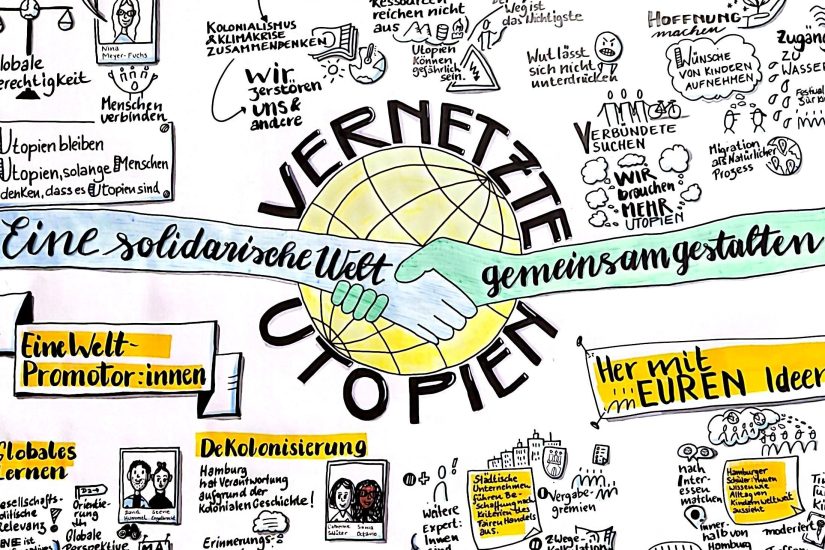 Globale
Gerechtigkeit
Nina
Meyer-Fuchs
Menschen
verbinden
KOLONIALISMUS
& KLIMAKRISE
ZUSAMMENDENKEN
wir
zerstören
uns &
andere
Ressourcen
reichen nicht
aus
Utopien
können
gefährlich
sein.
Weg ist
das Wichtigste
Wut lässt
sich nicht
unterdrücken
HOFFNUNG
machen
WÜNSCHE
VON KINDERN
AUFNEHMEN
Zugang
zu
WASSER
Festival
für
VERBÜNDETE
SUCHEN
WIR
brauchen
MEHR
UTOPIEN
Migration
als Natürlicher
Prozess
Utopien bleiben
Utopien, solange Menschen
denken, dass es Utopien sind
VERNETZTE
UTOPIEN
Eine solidarische Welt
gemeinsam gestalten
Eine Welt-
Promotor:innen
Her mit
EUREN Ideen
Globales
Lernen
Gesellschafts-
Politische
Relevanz
BNE ist
Orientie-
rung
Globale
Perspektive
DeKolonisierung
Hamburg
hat Verantwortung
aufgrund der
Kolonialen Geschichte!
Erinnerungs-
Städtische
Unternehmen
führen Be-
schaffung nach
Kriterien des
Fairen Handels
aus.
Weitere
Expert:
Innen
sind
Vergabe-
gremien
nach
Inter-
essen
matchen
innerhalb von
Hamburg
Hamburger
Schüler:innen
wissen wie
Alltag von
Kindern weltweit
aussieht
moderiert